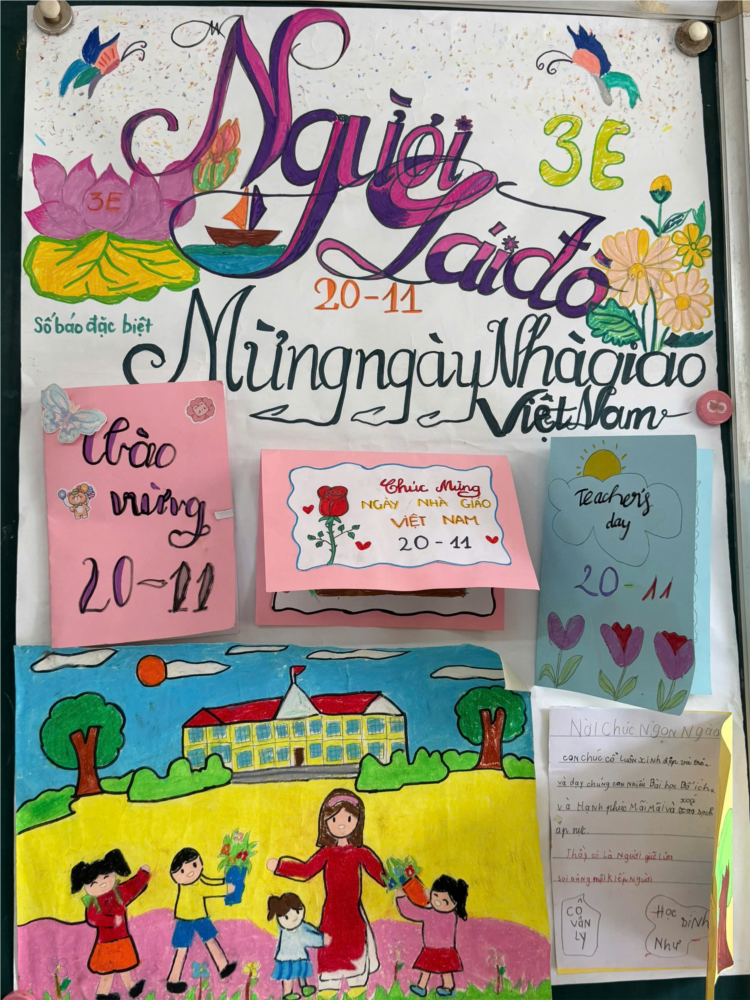 Người
Lái đò
3E
3E
20-11
Số báo đặc biệt
Mừng ngày Nhà giáo
Việt Nam
Chào
mừng
20-11
Chúc Mừng
NGÀY NHÀ GIÁO
VIỆT NAM
20-11
Teacher's
day
20-11
Nời Chúc Ngọn Ngào
con chúc cô luôn xinh đẹp
và dạy chúng con nhiều Bài học Bổ ích
và Hạnh phúc Mãi Mãi và
ắp
Thầy cô là Người
soi sáng Kiếp Người
CÔ
VÂN
LY
Học
DiNH
Như